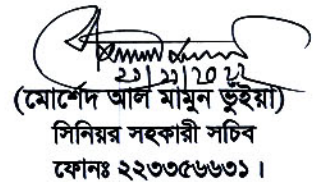 ২২|১১|২০২২
(মোর্শেদ আল মামুন ভুঁইয়া)
সিনিয়র সহকারী সচিব
ফোনঃ ২২৩৩৫৬৬৩১।